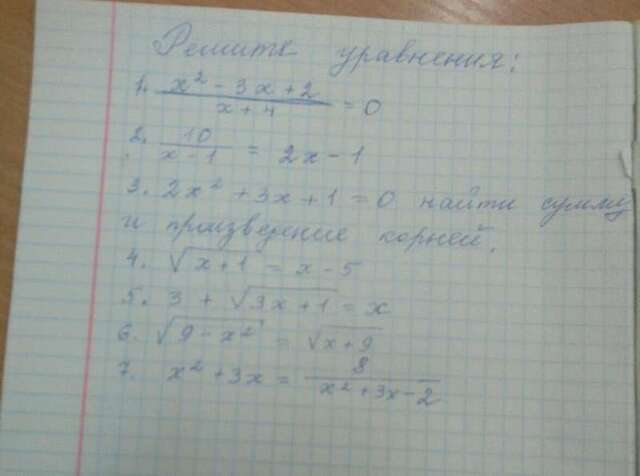 Решите уравнения:
1. (x² - 3x + 2)/(x + 4) = 0
2. 10/(x - 1) = 2x - 1
3. 2x² + 3x + 1 = 0 найти сумму
и произведение корней.
4. √(x + 1) = x - 5
5. 3 + √(3x + 1) = x
6. √(9 - x²) = √(x + 9)
7. x² + 3x = 8/(x² + 3x - 2)